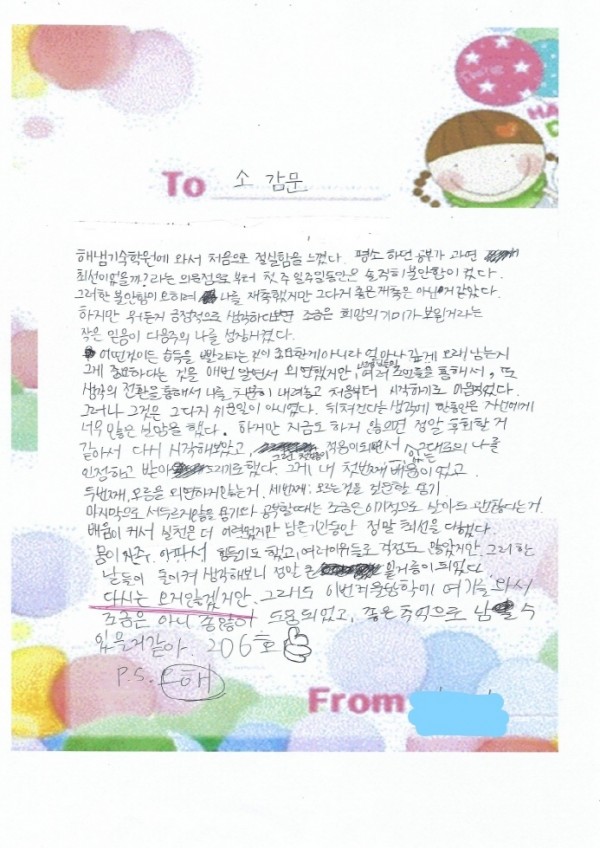 HA
D
To 소 감문
해냄기숙학원에 와서 처음으로 절실함을 느꼈다. 평소 하던 공부가 과연
최선이었을까? 라는 의문점으로 부터 첫 주 일주일동안은 솔직히 불안함이 컸다.
그러한 불안함이 오히려 나를 재촉했지만 그다지 좋은 재촉은 아닌거 같았다.
하지만 뭐든지 긍정적으로 생각하다보면 조금은 희망의 기미가 보일거라는
작은 믿음이 다음주의 나를 성장시켰다.
어떤것이든 습득을 빨리하는 것이 중요한게 아니라 얼마나 깊게 오래 남는지
그게 중요하다는 것을 매번 알면서 외면했지만, 여러 조언들을 통해서, 또
생각의 전환을 통해서 나를 차분히 내려놓고 처음부터 시작하기로 마음먹었다.
그러나 그것은 그다지 쉬운일이 아니였다. 뒤쳐진다는 생각에 한동안은 자신에게
너무 많은 실망을 했다. 하지만 지금도 하지 않으면 정말 후회할 거
같아서 다시 시작해보았고, 적응이되면서 있는 그대로의 나를
인정하고 받아드리기로했다. 그게 내 첫번째 배움이였고
두번째, 모름을 외면하지않는거, 세번째: 모르는것을 질문할 용기
마지막으로 서두르지않을 용기와 공부할때는 조금은 이기적으로 살아도 괜찮다는거.
배움이 커서 실천은 더 어려웠지만 남은기간동안 정말 최선을 다했다.
몸이 자주 아파서 힘들기도 했고, 여러이유들로 걱정도 많았지만, 그러한
날들이 돌이켜 생각해보니 정말 큰 밑거름이 되었다
다시는 오지않겠지만, 그래도 이번겨울방학에 여기를 와서
조금은 아니 좀많이 도움 되었고, 좋은 추억으로 남을 수
있을거같아. 206호
P.S.
From